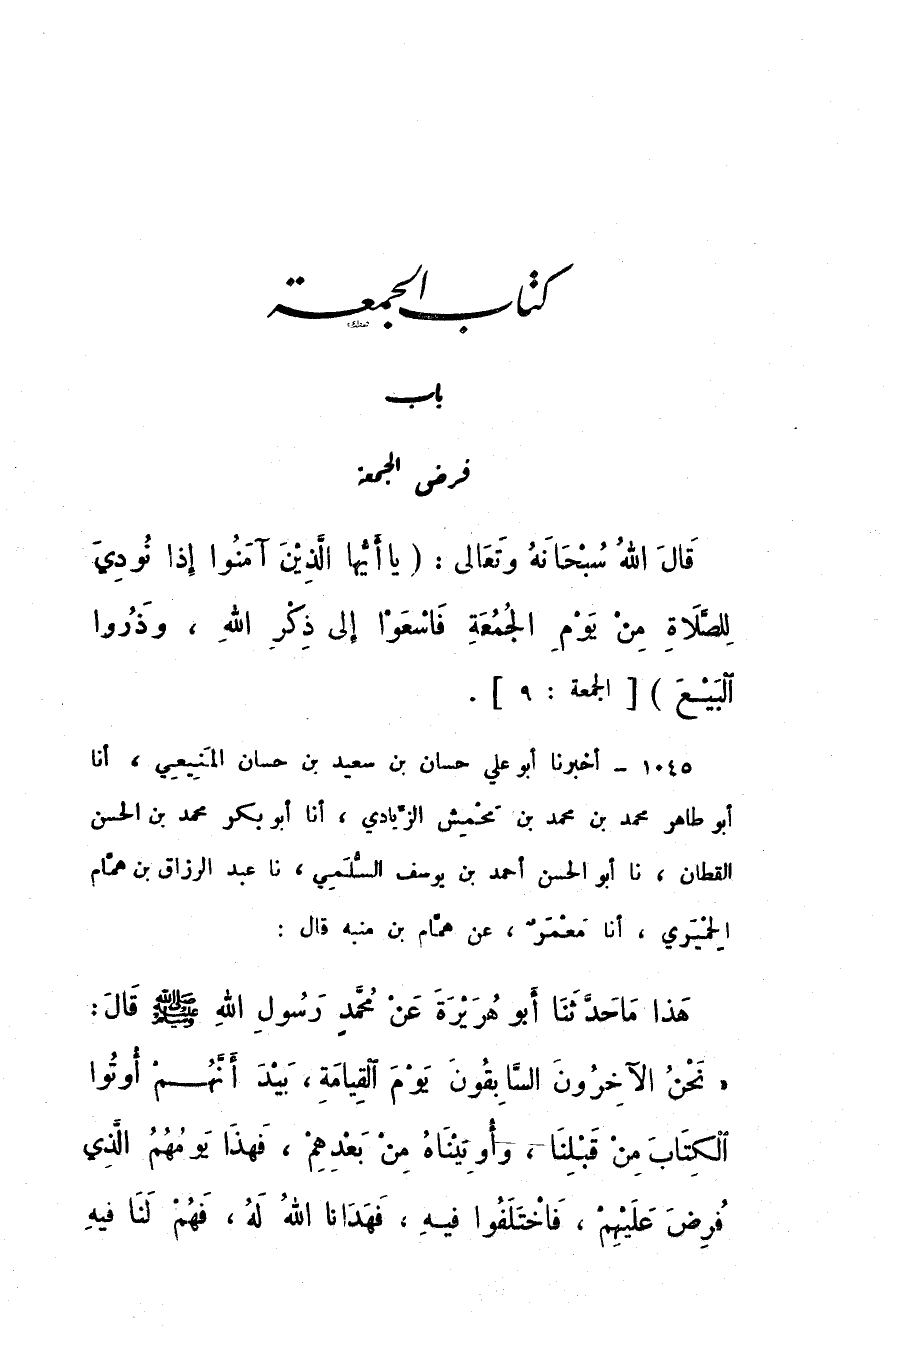 كتاب الجمعة
باب
فرض الجمعة
قَالَ اللهُ سُبْحَانَهُ وَتَعَالى : ( ياأَيُّها الَّذِيْنَ آمَنُوا إِذا نُودِيَ
لِلصَّلَاةِ مِنْ يَوْمِ الْجُمُعَةِ فَاسْعَوْا إِلى ذِكْرِ اللهِ ، وَذَرُوا
الْبَيْعَ ) [ الجمعة : ٩ ] .
١٠٤٥ – أخبرنا أبو علي حسان بن سعيد بن حسان المَنِيعِي ، أنا
أبو طاهر محمد بن محمد بن مَحْمِش الزِّيادي ، أنا أبو بكر محمد بن الحسن
القطان ، نا أبو الحسن أحمد بن يوسف السُّلَمِي ، نا عبد الرزاق بن همَّام
الحِمْيَرِي ، أنا مَعْمَرٌ ، عن همَّام بن منبه قال :
هَذا مَاحَدَّثَنَا أَبو هُرَيْرَةَ عَنْ مُحَمَّدٍ رَسُولِ اللهِ ﷺ قَالَ :
« نَحْنُ الآخِرُونَ السَّابِقُونَ يَوْمَ الْقِيامَةِ ، بَيْدَ أَنَّهُمْ أُوتُوا
الْكِتَابَ مِنْ قَبْلِنَا ، وَأُوتِيْنَاهُ مِنْ بَعْدِهِمْ ، فَهذَا يَوْمُهُمُ الَّذِي
فُرِضَ عَلَيْهِمْ ، فَاخْتَلَفُوا فِيهِ ، فَهَدَانا اللهُ لَهُ ، فَهُمْ لَنَا فيهِ